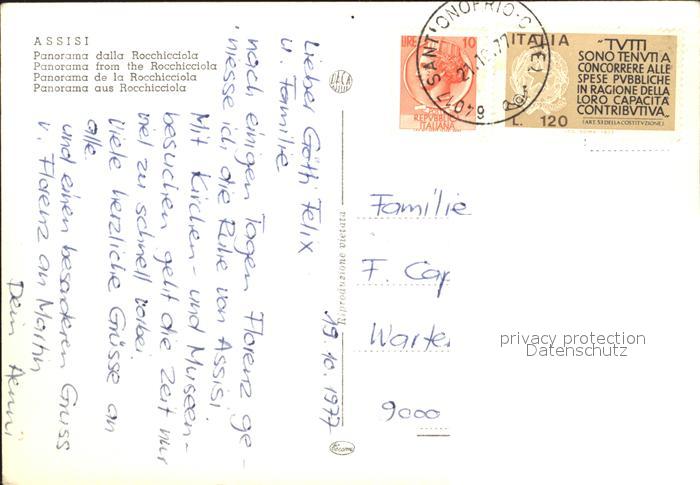 ASSISI
Panorama dalla Rocchicciola
Panorama from the Rocchicciola
Panorama de la Rocchicciola
Panorama aus Rocchicciola
19.10.1977
Lieber Götti Felix
u. Familie
nach einigen Tagen Florenz ge-
niesse ich die Ruhe von Assisi.
Mit Kirchen- und Museen-
besuchen geht die Zeit nur
viel zu schnell vorbei.
Viele herzliche Grüsse an
alle.
und einen besonderen Gruss
v. Florenz an Martin
Dein
Riproduzione vietata
LIRE 10
REPVBBLICA
ITALIANA
SANT'ONOFRIO
21.10.77
ITALIA
"TVTTI
SONO TENVTI A
CONCORRERE ALLE
SPESE PVBBLICHE
IN RAGIONE DELLA
LORO CAPACITÀ
CONTRIBVTIVA"
(ART. 53 DELLA COSTITVZIONE)
L. 120
Familie
F. Cap
Warte
9000
privacy protection
Datenschutz